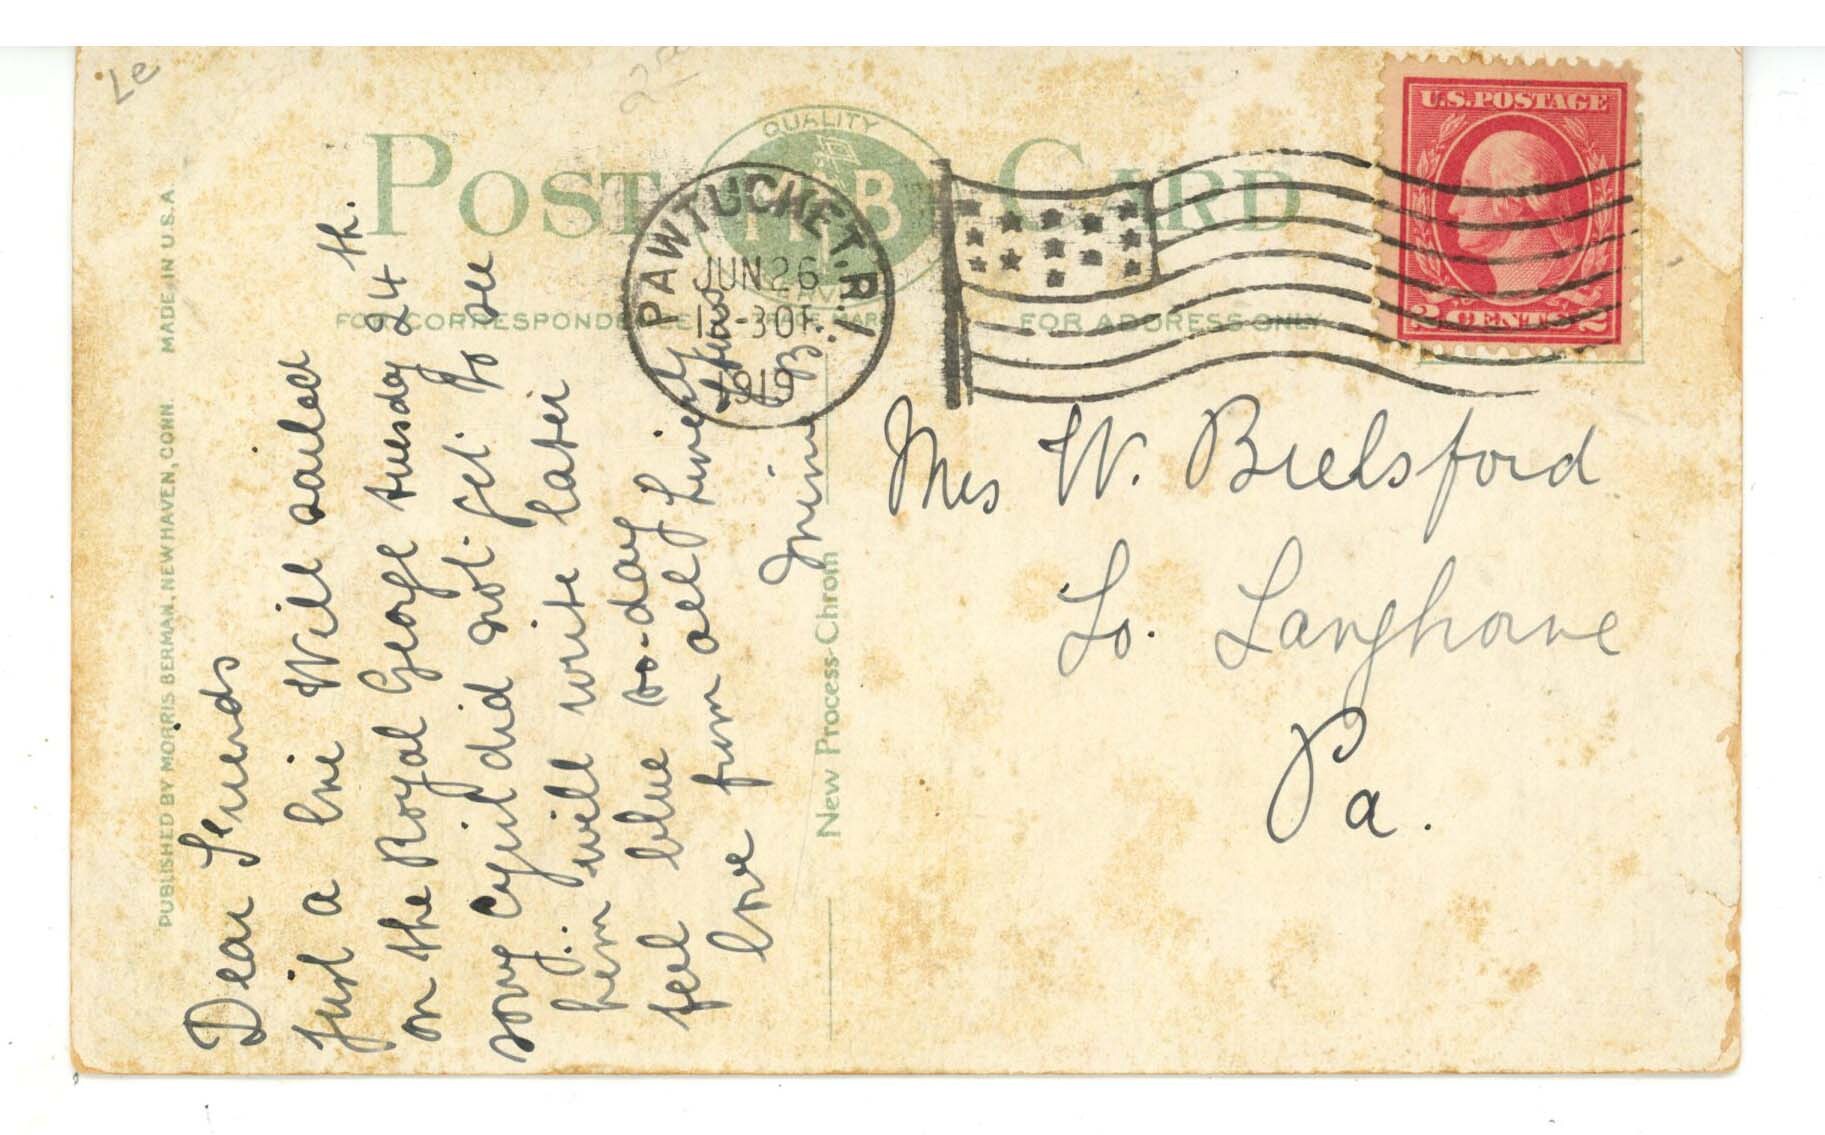 Le
2nd
POST CARD
QUALITY
B
FOR CORRESPONDENCE
FOR ADDRESS ONLY
PAWTUCKET. R.I.
JUN 26
-30P
1919
U.S. POSTAGE
2 CENTS 2
PUBLISHED BY MORRIS BERMAN, NEW HAVEN, CONN. MADE IN U.S.A.
New Process-Chrom
Dear Friends
Just a line Will sailed
on the Royal George tuesday 24th.
sorry Cyril did not get to see
him will write later
feel blue to-day lonely
love from all
Minnie B.
Mrs W. Brelsford
So. Langhorne
Pa.